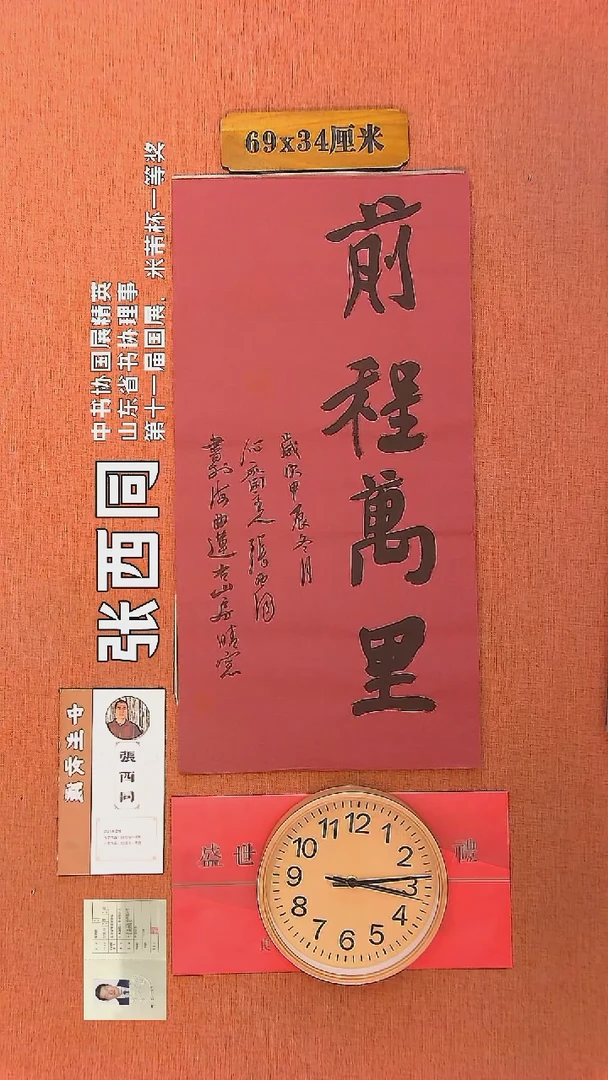 69x34厘米
前程萬里
歲次甲辰冬月
齋主人張西同
書於海曲蓮 山房晴窓
中书协国展精英
山东省书协理事
第十一届国展、米芾杯一等奖
张西同
張西同
盛世 禮
12
1
2
3
4
5
6
7
8
9
10
11